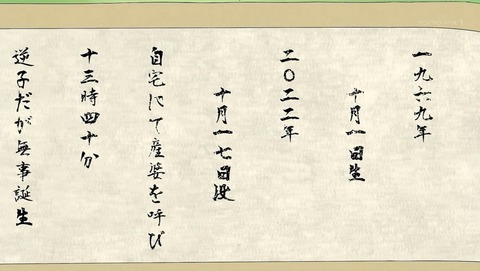 一九六九年
十月一日生
二〇二二年
十月一七日没
自宅にて産婆を呼び
十三時四十分
逆子だが無事誕生